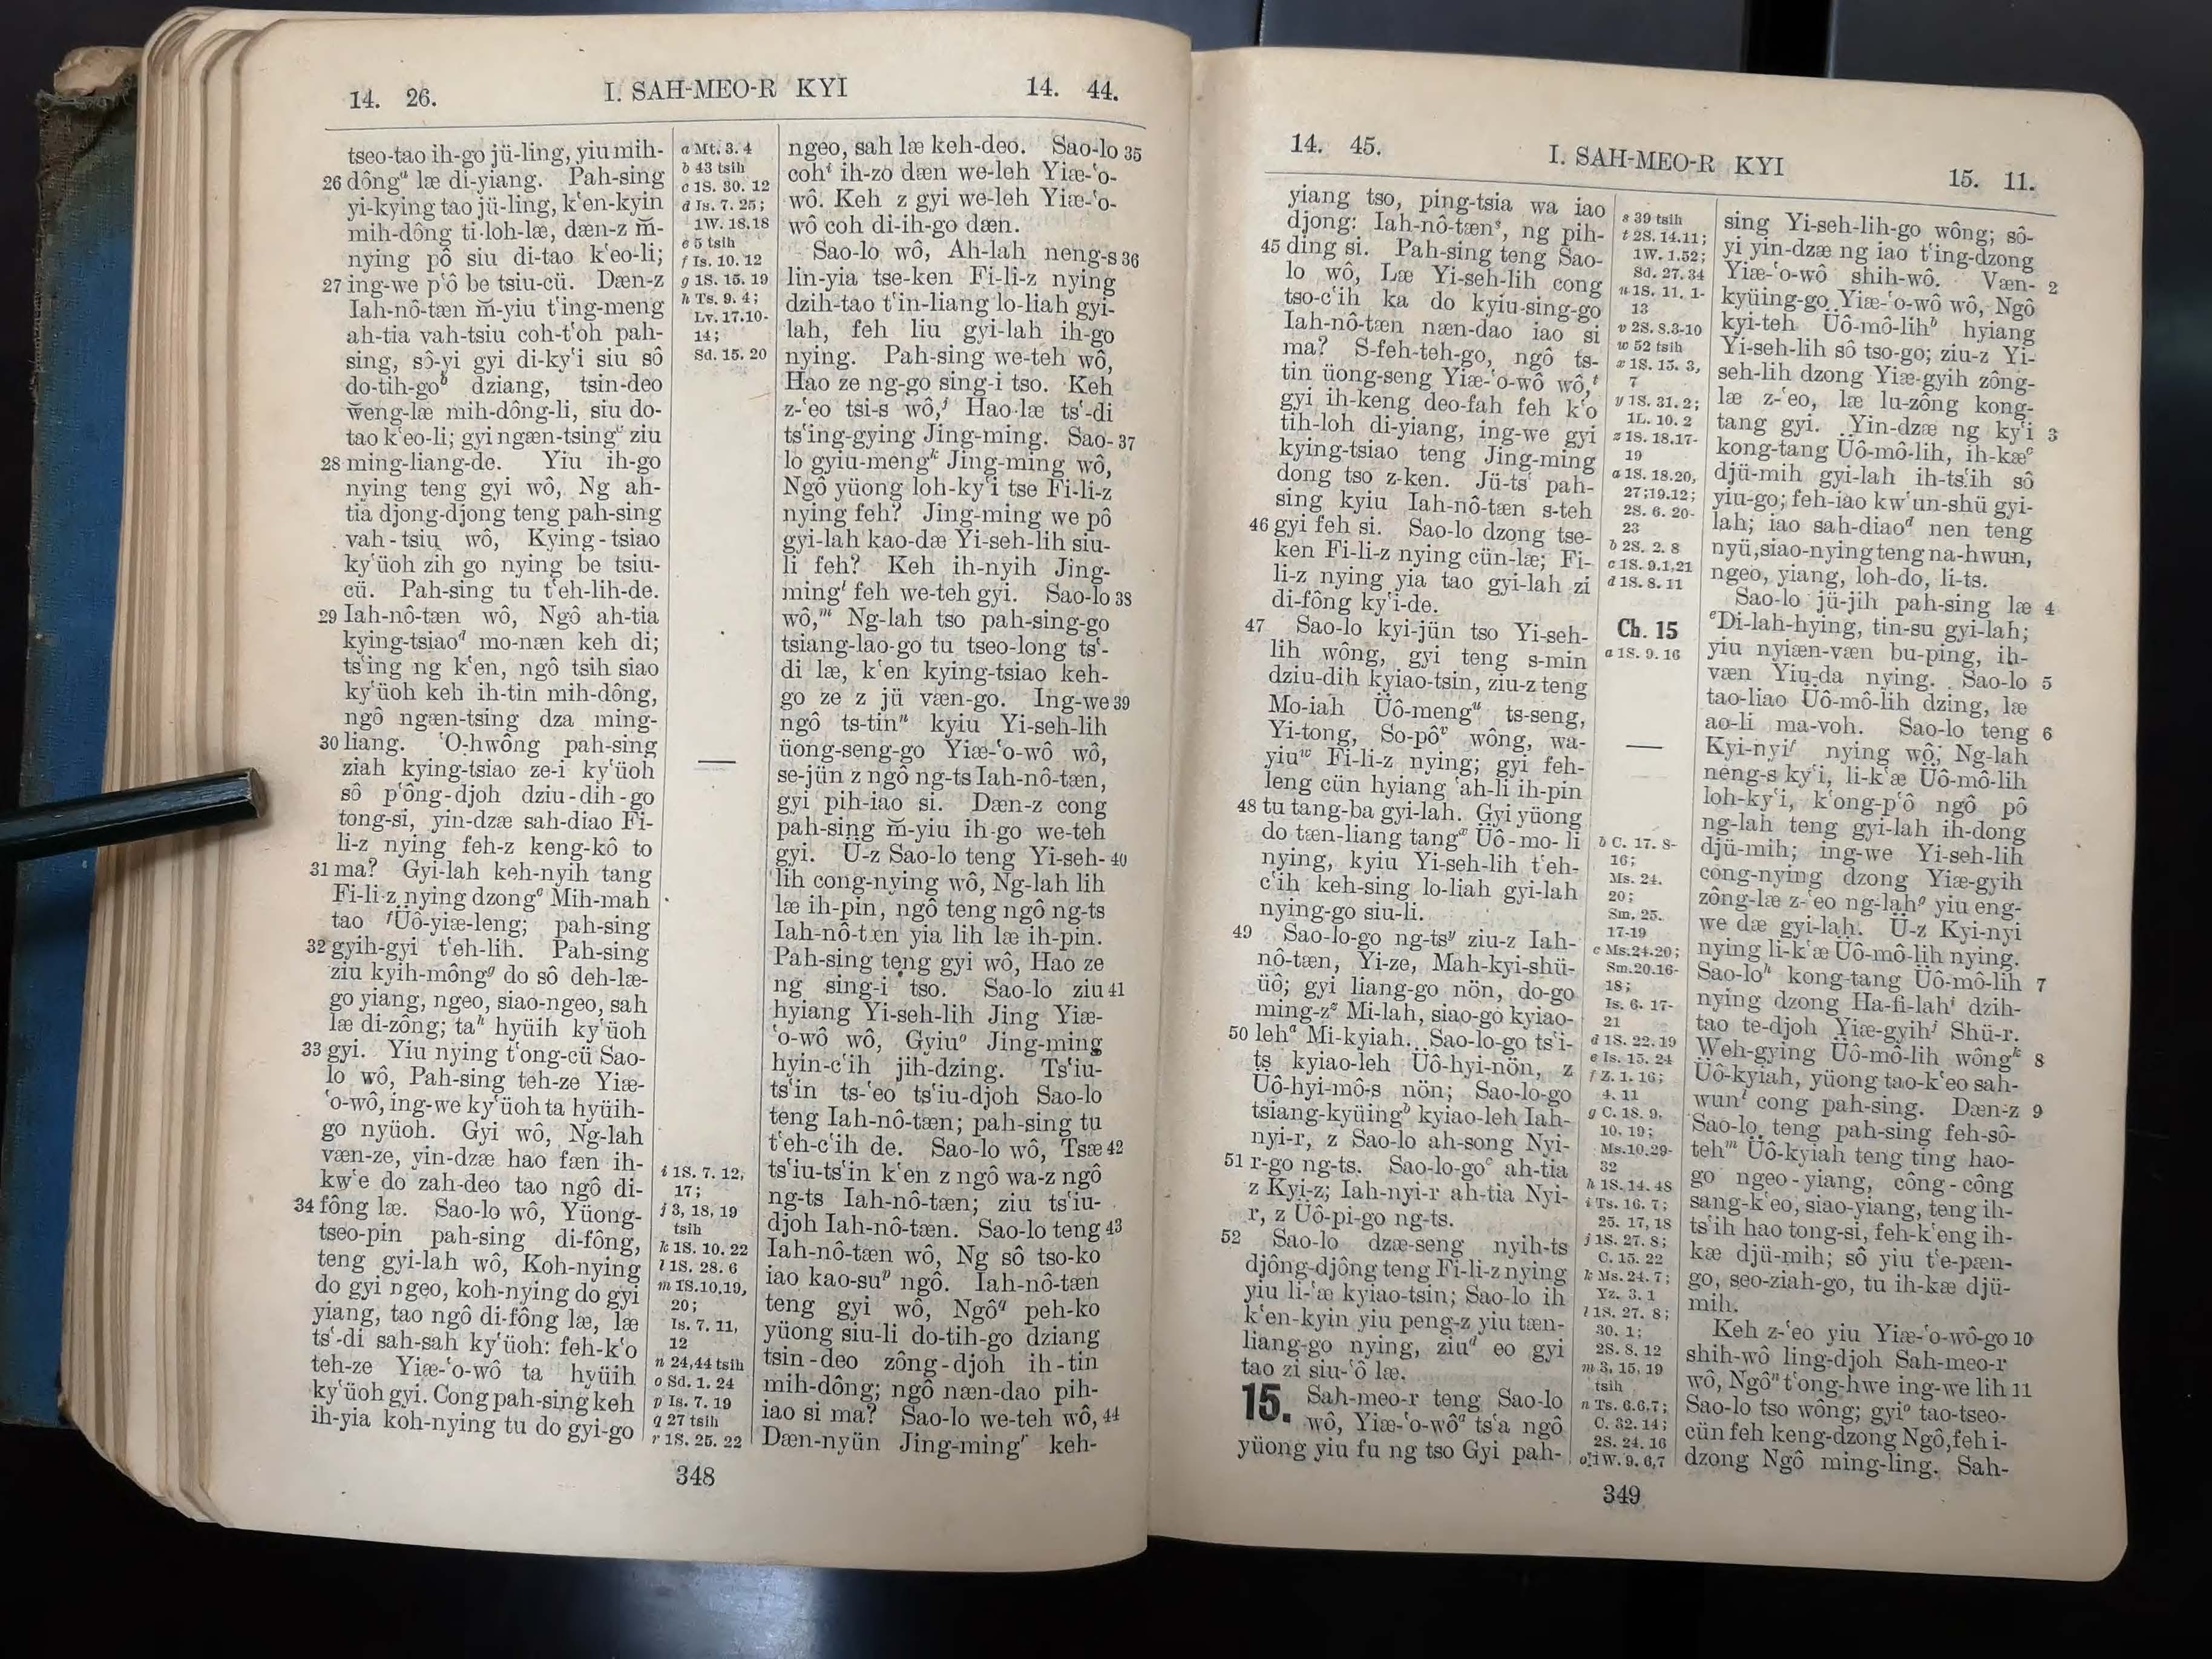 14. 26.
I. SAH-MEO-R KYI
14. 44.
tseo-tao ih-go jü-ling, yiu mih-
26 dôngᵃ læ di-yiang. Pah-sing
yi-kying tao jü-ling, kʻen-kyin
mih-dông ti-loh-læ, dæn-z m̆-
nying pô siu di-tao kʻeo-li;
27 ing-we pʻô be tsiu-cü. Dæn-z
Iah-nô-tæn m̆-yiu tʻing-meng
ah-tia vah-tsiu coh-tʻoh pah-
sing, sô-yi gyi di-kyʻi siu sô
do-tih-goᵇ dziang, tsin-deo
weng-læ mih-dông-li, siu do-
tao kʻeo-li; gyi ngæn-tsingᶜ ziu
28 ming-liang-de. Yiu ih-go
nying teng gyi wô, Ng ah-
tia djong-djong teng pah-sing
vah-tsiu wô, Kying-tsiao
kyʻüoh zih go nying be tsiu-
cü. Pah-sing tu tʻeh-lih-de.
29 Iah-nô-tæn wô, Ngô ah-tia
kying-tsiaoᵈ mo-næn keh di;
tsʻing ng kʻen, ngô tsih siao
kyʻüoh keh ih-tin mih-dông,
ngô ngæn-tsing dza ming-
30 liang. ʻO-hwông pah-sing
ziah kying-tsiao ze-i kyʻüoh
sô pʻông-djoh dziu-dih-go
tong-si, yin-dzæ sah-diao Fi-
li-z nying feh-z keng-kô to
31 ma? Gyi-lah keh-nyih tang
Fi-li-z nying dzongᵉ Mih-mah
tao ᶠÜô-yiæ-leng; pah-sing
32 gyih-gyi tʻeh-lih. Pah-sing
ziu kyih-môngᵍ do sô deh-læ-
go yiang, ngeo, siao-ngeo, sah
læ di-zông; taʰ hyüih kyʻüoh
33 gyi. Yiu nying tʻong-cü Sao-
lo wô, Pah-sing teh-ze Yiæ-
ʻo-wô, ing-we kyʻüoh ta hyüih-
go nyüoh. Gyi wô, Ng-lah
væn-ze, yin-dzæ hao fæn ih-
kwʻe do zah-deo tao ngô di-
34 fông læ. Sao-lo wô, Yüong-
tseo-pin pah-sing di-fông,
teng gyi-lah wô, Koh-nying
do gyi ngeo, koh-nying do gyi
yiang, tao ngô di-fông læ, læ
tsʻ-di sah-sah kyʻüoh: feh-kʻo
teh-ze Yiæ-ʻo-wô ta hyüih
kyʻüoh gyi. Cong pah-sing keh
ih-yia koh-nying tu do gyi-go
a Mt. 3. 4
b 43 tsih
c 1S. 30. 12
d Is. 7. 25;
1W. 18.18
e 5 tsih
f Is. 10. 12
g 1S. 15. 19
h Ts. 9. 4;
Lv. 17.10-
14;
Sd. 15. 20
i 1S. 7. 12,
17;
j 3, 18, 19
tsih
k 1S. 10. 22
l 1S. 28. 6
m 1S.10,19,
20;
Is. 7. 11,
12
n 24,44 tsih
o Sd. 1. 24
p Is. 7. 19
q 27 tsih
r 1S. 25. 22
ngeo, sah læ keh-deo. Sao-lo 35
cohⁱ ih-zo dæn we-leh Yiæ-ʻo-
wô. Keh z gyi we-leh Yiæ-ʻo-
wô coh di-ih-go dæn.
Sao-lo wô, Ah-lah neng-s 36
lin-yia tse-ken Fi-li-z nying
dzih-tao tʻin-liang lo-liah gyi-
lah, feh liu gyi-lah ih-go
nying. Pah-sing we-teh wô,
Hao ze ng-go sing-i tso. Keh
z-ʻeo tsi-s wô,ʲ Hao-læ tsʻ-di
tsʻing-gying Jing-ming. Sao- 37
lo gyiu-mengᵏ Jing-ming wô,
Ngô yüong loh-kyʻi tse Fi-li-z
nying feh? Jing-ming we pô
gyi-lah kao-dæ Yi-seh-lih siu-
li feh? Keh ih-nyih Jing-
mingˡ feh we-teh gyi. Sao-lo 38
wô,ᵐ Ng-lah tso pah-sing-go
tsiang-lao-go tu tseo-long tsʻ-
di læ, kʻen kying-tsiao keh-
go ze z jü væn-go. Ing-we 39
ngô ts-tinⁿ kyiu Yi-seh-lih
üong-seng-go Yiæ-ʻo-wô wô,
se-jün z ngô ng-ts Iah-nô-tæn,
gyi pih-iao si. Dæn-z cong
pah-sing m̆-yiu ih-go we-teh
gyi. Ü-z Sao-lo teng Yi-seh- 40
lih cong-nying wô, Ng-lah lih
læ ih-pin, ngô teng ngô ng-ts
Iah-nô-tæn yia lih læ ih-pin.
Pah-sing teng gyi wô, Hao ze
ng sing-i tso. Sao-lo ziu 41
hyiang Yi-seh-lih Jing Yiæ-
ʻo-wô wô, Gyiuᵒ Jing-ming
hyin-cʻih jih-dzing. Tsʻiu-
tsʻin ts-ʻeo tsʻiu-djoh Sao-lo
teng Iah-nô-tæn; pah-sing tu
tʻeh-cʻih de. Sao-lo wô, Tsæ 42
tsʻiu-tsʻin kʻen z ngô wa-z ngô
ng-ts Iah-nô-tæn; ziu tsʻiu-
djoh Iah-nô-tæn. Sao-lo teng 43
Iah-nô-tæn wô, Ng sô tso-ko
iao kao-suᵖ ngô. Iah-nô-tæn
teng gyi wô, Ngôq peh-ko
yüong siu-li do-tih-go dziang
tsin-deo zông-djoh ih-tin
mih-dông; ngô næn-dao pih-
iao si ma? Sao-lo we-teh wô, 44
Dæn-nyün Jing-mingʳ keh-
348
14. 45.
I. SAH-MEO-R KYI
15. 11.
yiang tso, ping-tsia wa iao
djong: Iah-nô-tænˢ, ng pih-
45 ding si. Pah-sing teng Sao-
lo wô, Læ Yi-seh-lih cong
tso-cʻih ka do kyiu-sing-go
Iah-nô-tæn næn-dao iao si
ma? S-feh-teh-go, ngô ts-
tin üong-seng Yiæ-ʻo-wô wô,ᵗ
gyi ih-keng deo-fah feh kʻo
tih-loh di-yiang, ing-we gyi
kying-tsiao teng Jing-ming
dong tso z-ken. Jü-tsʻ pah-
sing kyiu Iah-nô-tæn s-teh
46 gyi feh si. Sao-lo dzong tse-
ken Fi-li-z nying cün-læ; Fi-
li-z nying yia tao gyi-lah zi
di-fông kyʻi-de.
47 Sao-lo kyi-jün tso Yi-seh-
lih wông, gyi teng s-min
dziu-dih kyiao-tsin, ziu-z teng
Mo-iah Üô-mengᵘ ts-seng,
Yi-tong, So-pôᵛ wông, wa-
yiuʷ Fi-li-z nying; gyi feh-
leng cün hyiang ʻah-li ih-pin
48 tu tang-ba gyi-lah. Gyi yüong
do tæn-liang tangˣ Üô-mo-li
nying, kyiu Yi-seh-lih tʻeh-
cʻih keh-sing lo-liah gyi-lah
nying-go siu-li.
49 Sao-lo-go ng-tsʸ ziu-z Iah-
nô-tæn, Yi-ze, Mah-kyi-shü-
üô; gyi liang-go nön, do-go
ming-zᶻ Mi-lah, siao-go kyiao-
50 lehᵃ Mi-kyiah. Sao-lo-go tsʻi-
ts kyiao-leh Üô-hyi-nön, z
Üô-hyi-mô-s nön; Sao-lo-go
tsiang-kyüingᵇ kyiao-leh Iah-
nyi-r, z Sao-lo ah-song Nyi-
51 r-go ng-ts. Sao-lo-goᶜ ah-tia
z Kyi-z; Iah-nyi-r ah-tia Nyi-
r, z Üô-pi-go ng-ts.
52 Sao-lo dzæ-seng nyih-ts
djông-djông teng Fi-li-z nying
yiu li-ʻæ kyiao-tsin; Sao-lo ih
kʻen-kyin yiu peng-z yiu tæn-
liang-go nying, ziuᵈ eo gyi
tao zi siu-ʻô læ.
15. Sah-meo-r teng Sao-lo
wô, Yiæ-ʻo-wôᵃ tsʻa ngô
yüong yiu fu ng tso Gyi pah-
s 39 tsih
t 2S. 14.11;
1W. 1.52;
Sd. 27.34
u 1S. 11. 1-
13
v 2S. 8.3-10
w 52 tsih
x 1S. 15. 3,
7
y 1S. 31. 2;
1L. 10. 2
z 1S. 18.17-
19
a 1S. 18.20,
27;19.12;
2S. 6. 20-
23
b 2S. 2. 8
c 1S. 9.1,21
d 1S. 8. 11
Ch. 15
a 1S. 9. 16
b C. 17. 8-
16;
Ms. 24.
20;
Sm. 25.
17-19
c Ms.24.20;
Sm.20.16-
18;
Is. 6. 17-
21
d 1S. 22. 19
e Is. 15. 24
f Z. 1. 16;
4. 11
g C. 18. 9,
10, 19;
Ms.10.29-
32
h 1S. 14. 48
i Ts. 16. 7;
25. 17, 18
j 1S. 27. 8;
C. 15. 22
k Ms. 24. 7;
Yz. 3. 1
l 1S. 27. 8;
30. 1;
2S. 8. 12
m 3, 15, 19
tsih
n Ts. 6.6,7;
C. 32. 14;
2S. 24. 16
o 1W. 9. 6,7
sing Yi-seh-lih-go wông; sô-
yi yin-dzæ ng iao tʻing-dzong
Yiæ-ʻo-wô shih-wô. Væn- 2
kyüing-go Yiæ-ʻo-wô wô, Ngô
kyi-teh Üô-mô-lihᵇ hyiang
Yi-seh-lih sô tso-go; ziu-z Yi-
seh-lih dzong Yiæ-gyih zông-
læ z-ʻeo, læ lu-zông kong-
tang gyi. Yin-dzæ ng kyʻi 3
kong-tang Üô-mô-lih, ih-kæᶜ
djü-mih gyi-lah ih-tsʻih sô
yiu-go; feh-iao kwʻun-shü gyi-
lah; iao sah-diaoᵈ nen teng
nyü, siao-nying teng na-hwun,
ngeo, yiang, loh-do, li-ts.
Sao-lo jü-jih pah-sing læ 4
ᵉDi-lah-hying, tin-su gyi-lah;
yiu nyiæn-væn bu-ping, ih-
væn Yiu-da nying. Sao-lo 5
tao-liao Üô-mô-lih dzing, læ
ao-li ma-voh. Sao-lo teng 6
Kyi-nyiᶠ nying wô, Ng-lah
neng-s kyʻi, li-kʻæ Üô-mô-lih
loh-kyʻi, kʻong-pʻô ngô pô
ng-lah teng gyi-lah ih-dong
djü-mih; ing-we Yi-seh-lih
cong-nying dzong Yiæ-gyih
zông-læ z-ʻeo ng-lahᵍ yiu eng-
we dæ gyi-lah. Ü-z Kyi-nyi
nying li-kʻæ Üô-mô-lih nying.
Sao-loʰ kong-tang Üô-mô-lih 7
nying dzong Ha-fi-lahⁱ dzih-
tao te-djoh Yiæ-gyihʲ Shü-r.
Weh-gying Üô-mô-lih wôngᵏ 8
Üô-kyiah, yüong tao-kʻeo sah-
wunˡ cong pah-sing. Dæn-z 9
Sao-lo teng pah-sing feh-sô-
tehᵐ Üô-kyiah teng ting hao-
go ngeo-yiang, công-công
sang-kʻeo, siao-yiang, teng ih-
tsʻih hao tong-si, feh-kʻeng ih-
kæ djü-mih; sô yiu tʻe-pæn-
go, seo-ziah-go, tu ih-kæ djü-
mih.
Keh z-ʻeo yiu Yiæ-ʻo-wô-go 10
shih-wô ling-djoh Sah-meo-r
wô, Ngôⁿ tʻong-hwe ing-we lih 11
Sao-lo tso wông; gyiᵒ tao-tseo-
cün feh keng-dzong Ngô, feh i-
dzong Ngô ming-ling. Sah-
349